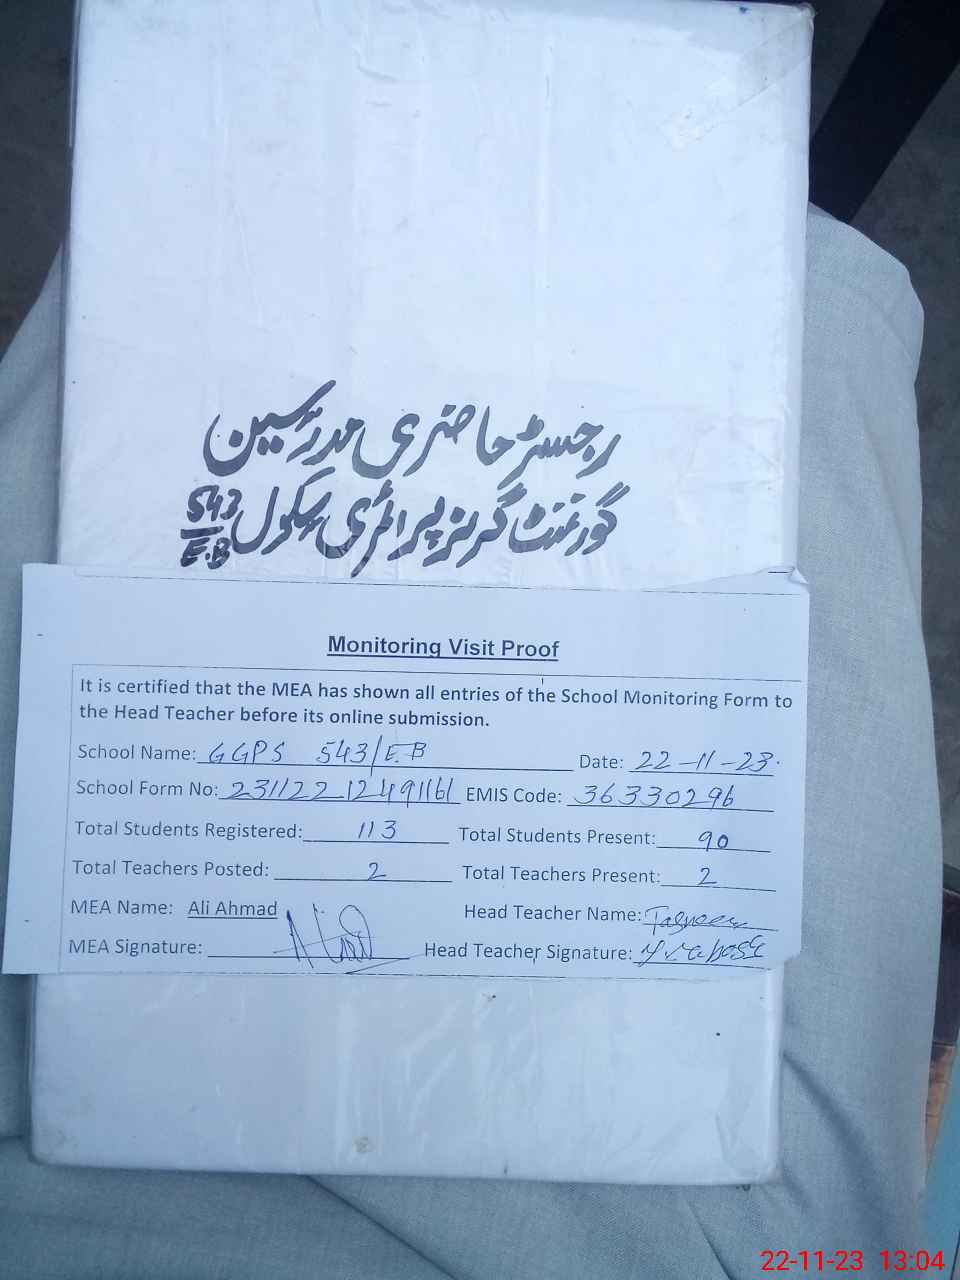 رجسٹر حاضری مدرسین
گورنمنٹ گرلز پرائمری سکول 543/E.B
Monitoring Visit Proof
It is certified that the MEA has shown all entries of the School Monitoring Form to
the Head Teacher before its online submission.
School Name: GGPS 543/E.B Date: 22-11-23
School Form No: 231122 12491161 EMIS Code: 36330296
Total Students Registered: 113 Total Students Present: 90
Total Teachers Posted: 2 Total Teachers Present: 2
MEA Name: Ali Ahmad Head Teacher Name:
MEA Signature: Head Teacher Signature:
22-11-23 13:04